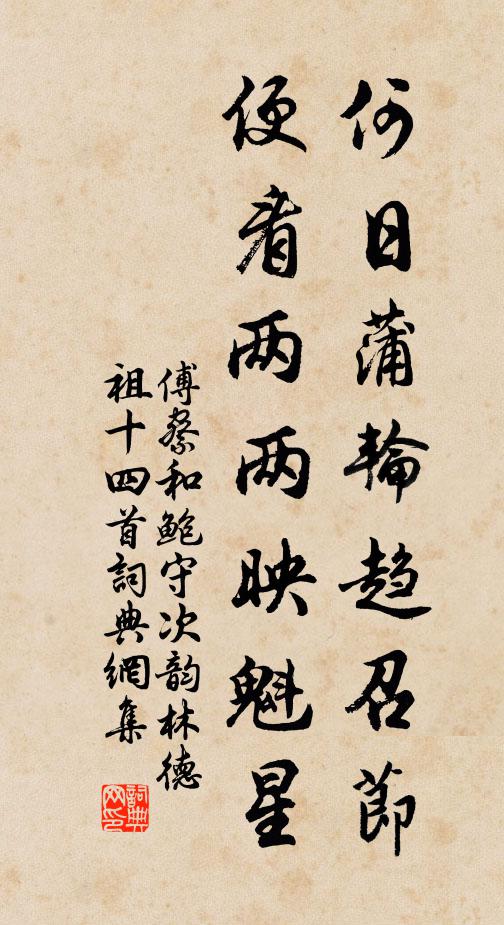 何日蒲輪趋召節
便看两两映魁星
傅察和鮑守次韵林德
祖十四首詞典網集
詞典網印